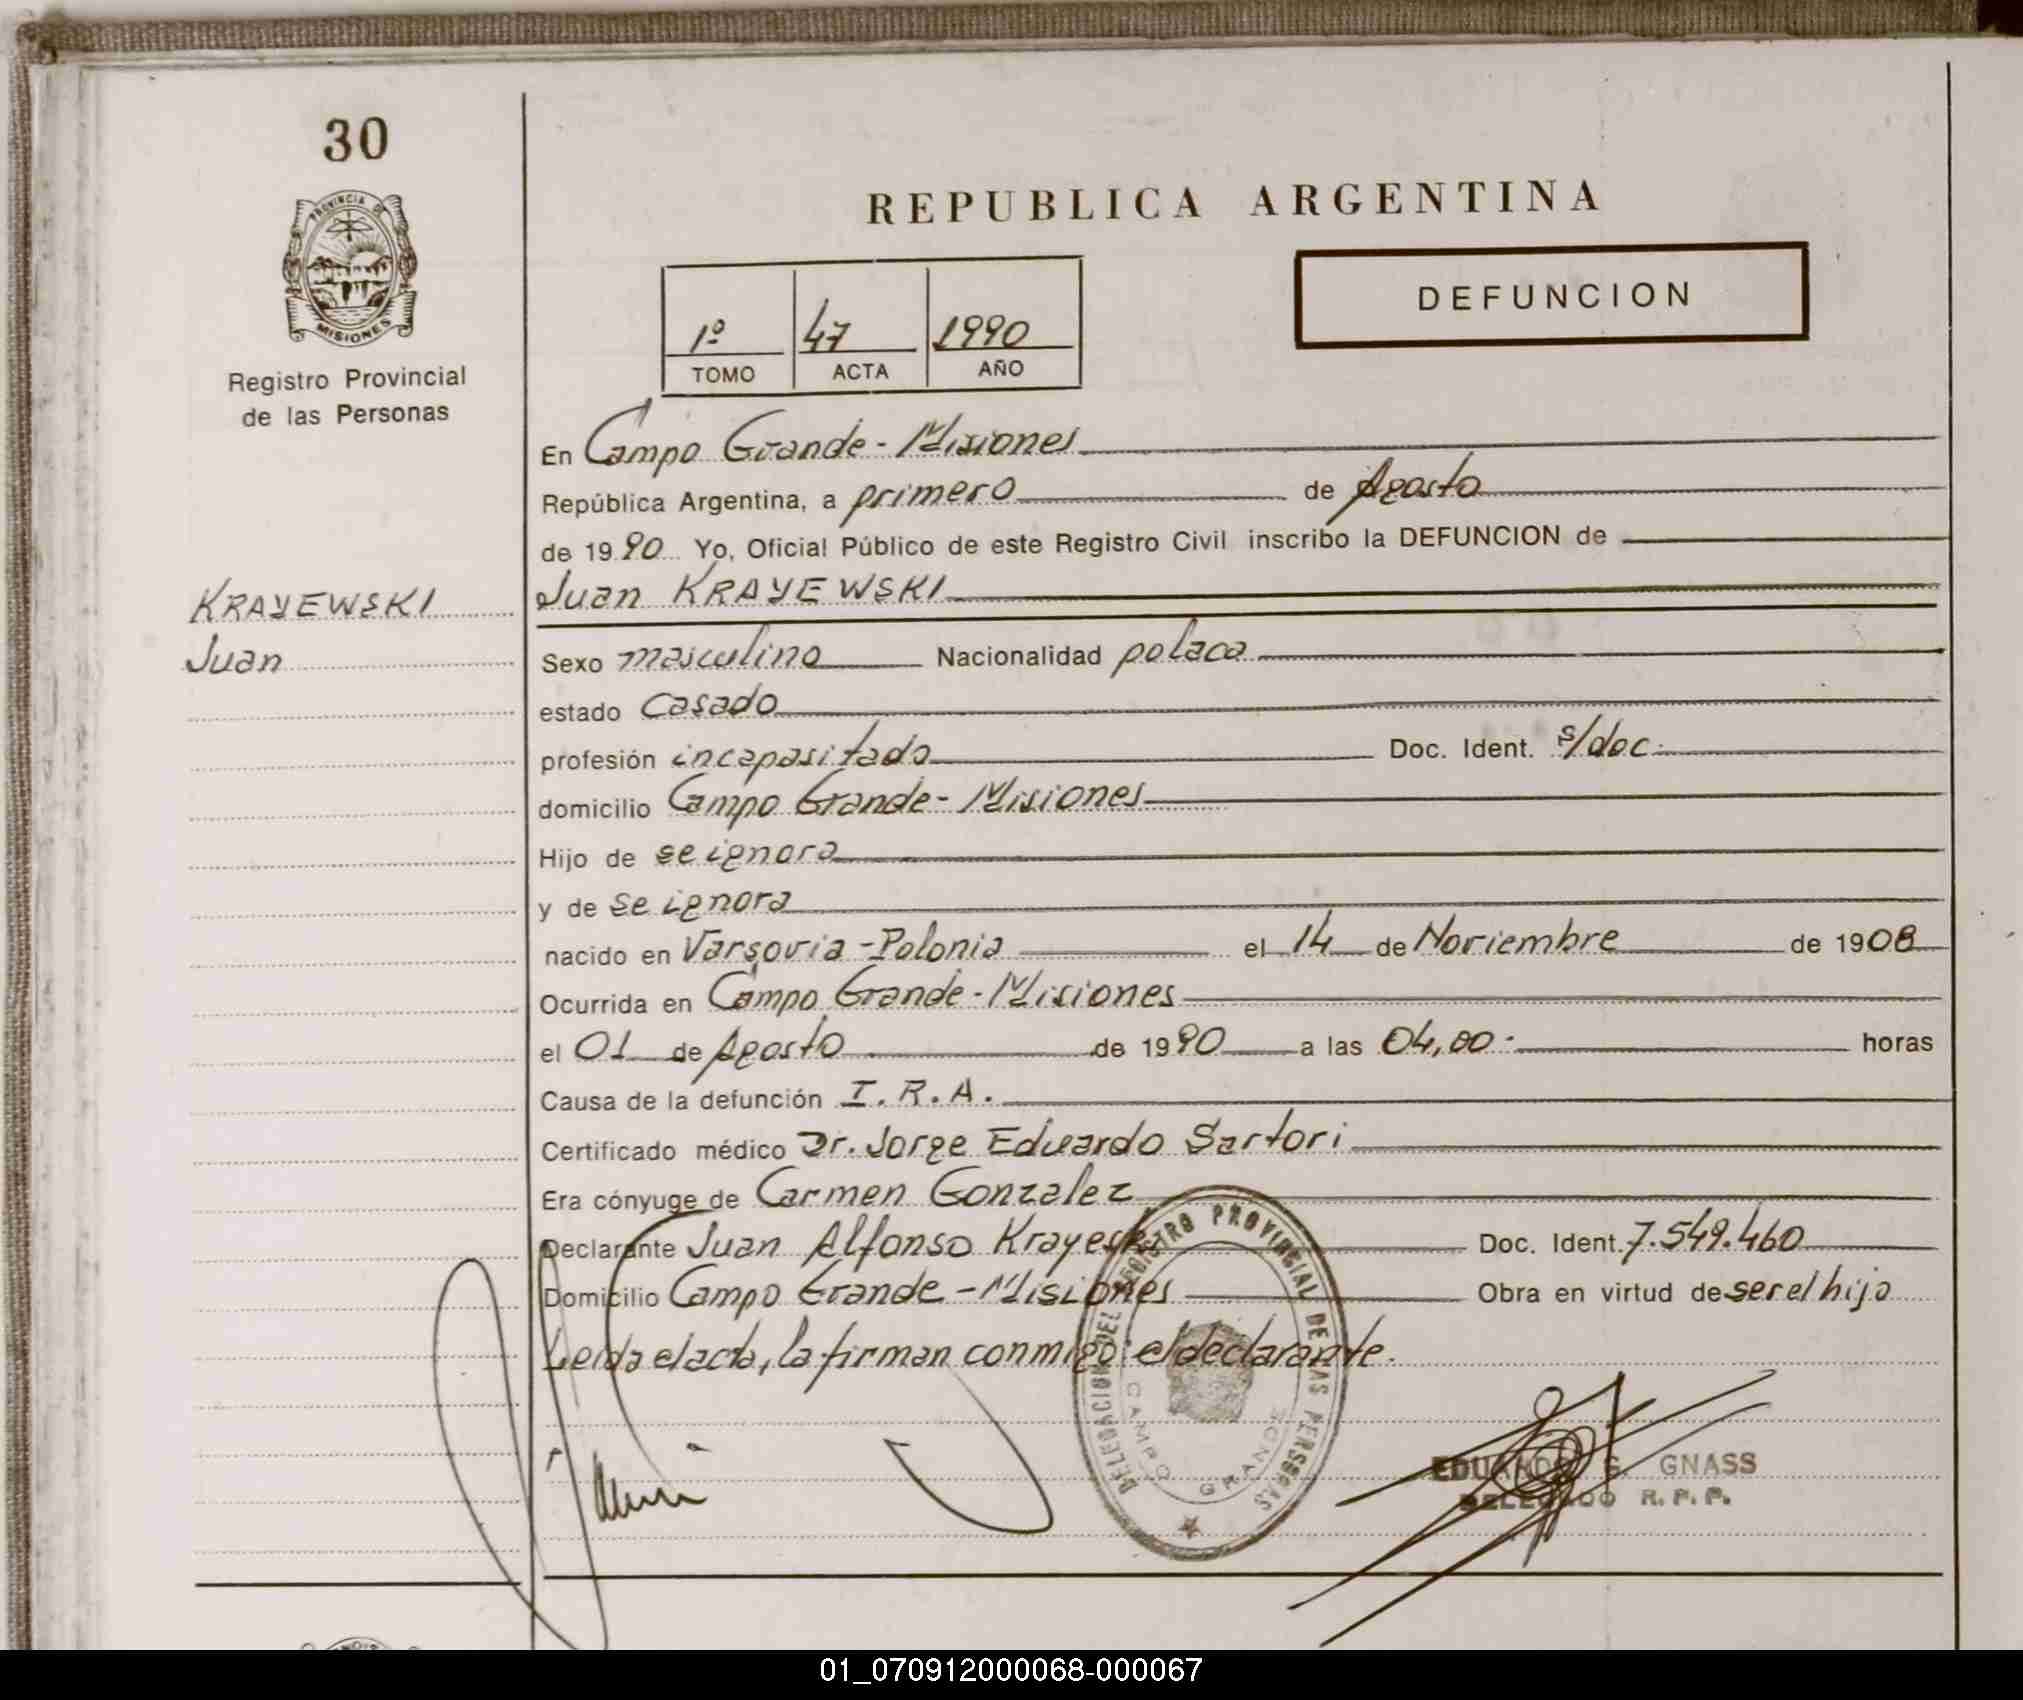 30
PROVINCIA DE
MISIONES
Registro Provincial
de las Personas
KRAYEWSKI
Juan
REPUBLICA ARGENTINA
DEFUNCION
1º 47 1990
TOMO ACTA AÑO
En Campo Grande - Misiones
República Argentina, a primero de Agosto
de 1990 Yo, Oficial Público de este Registro Civil inscribo la DEFUNCION de
Juan KRAYEWSKI
Sexo masculino Nacionalidad polaca
estado casado
profesión incapasitado Doc. Ident. s/doc.
domicilio Campo Grande - Misiones
Hijo de se ignora
y de se ignora
nacido en Varsovia - Polonia el 14 de Noviembre de 1908
Ocurrida en Campo Grande - Misiones
el 01 de Agosto de 1990 a las 04,00 horas
Causa de la defunción I.R.A.
Certificado médico Dr. Jorge Eduardo Sartori
Era cónyuge de Carmen Gonzalez
Declarante Juan Alfonso Doc. Ident. 7.549.460
Domicilio Campo Grande - Misiones Obra en virtud de ser el hijo
Leida el acta, la firman conmigo el declarante.
DELEGACION DEL REGISTRO PROVINCIAL DE LAS PERSONAS
CAMPO GRANDE
EDUARDO S. GNASS
DELEGADO R. P. P.
01_070912000068-000067